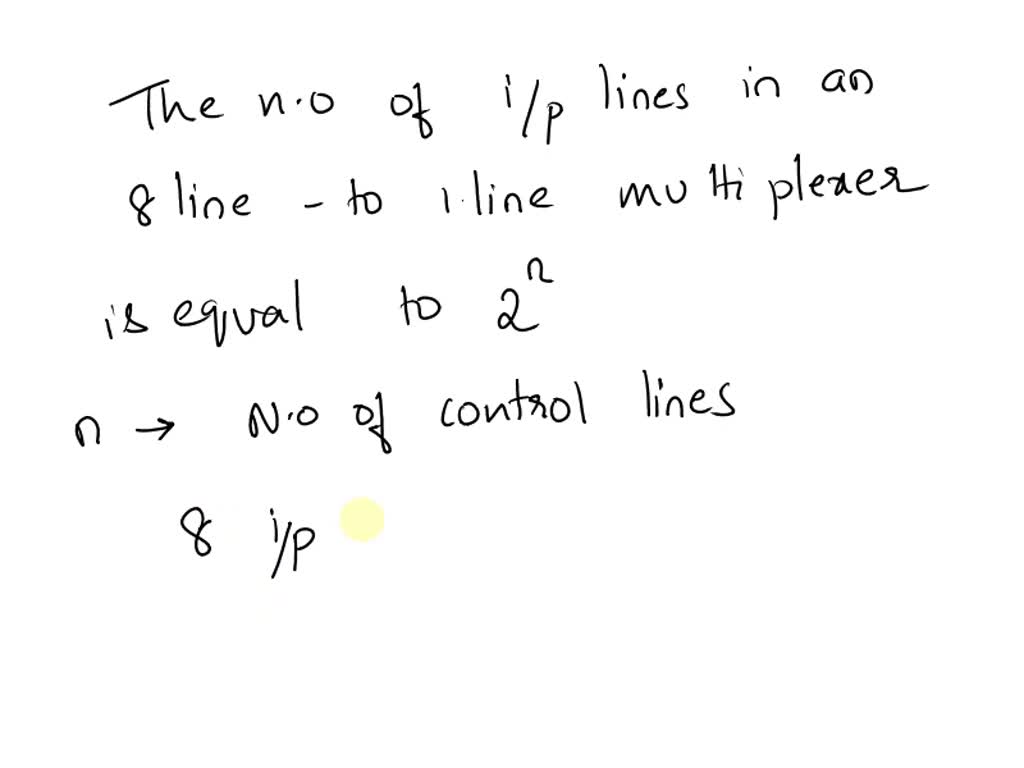 The n.o of i/p lines in an
8 line - to 1.line multiplexer
is equal to 2^n
n → N.o of control lines
8 i/p